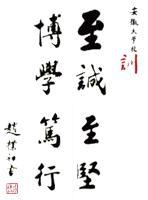 安徽大學校訓
至誠至堅
博學篤行
趙樸初書